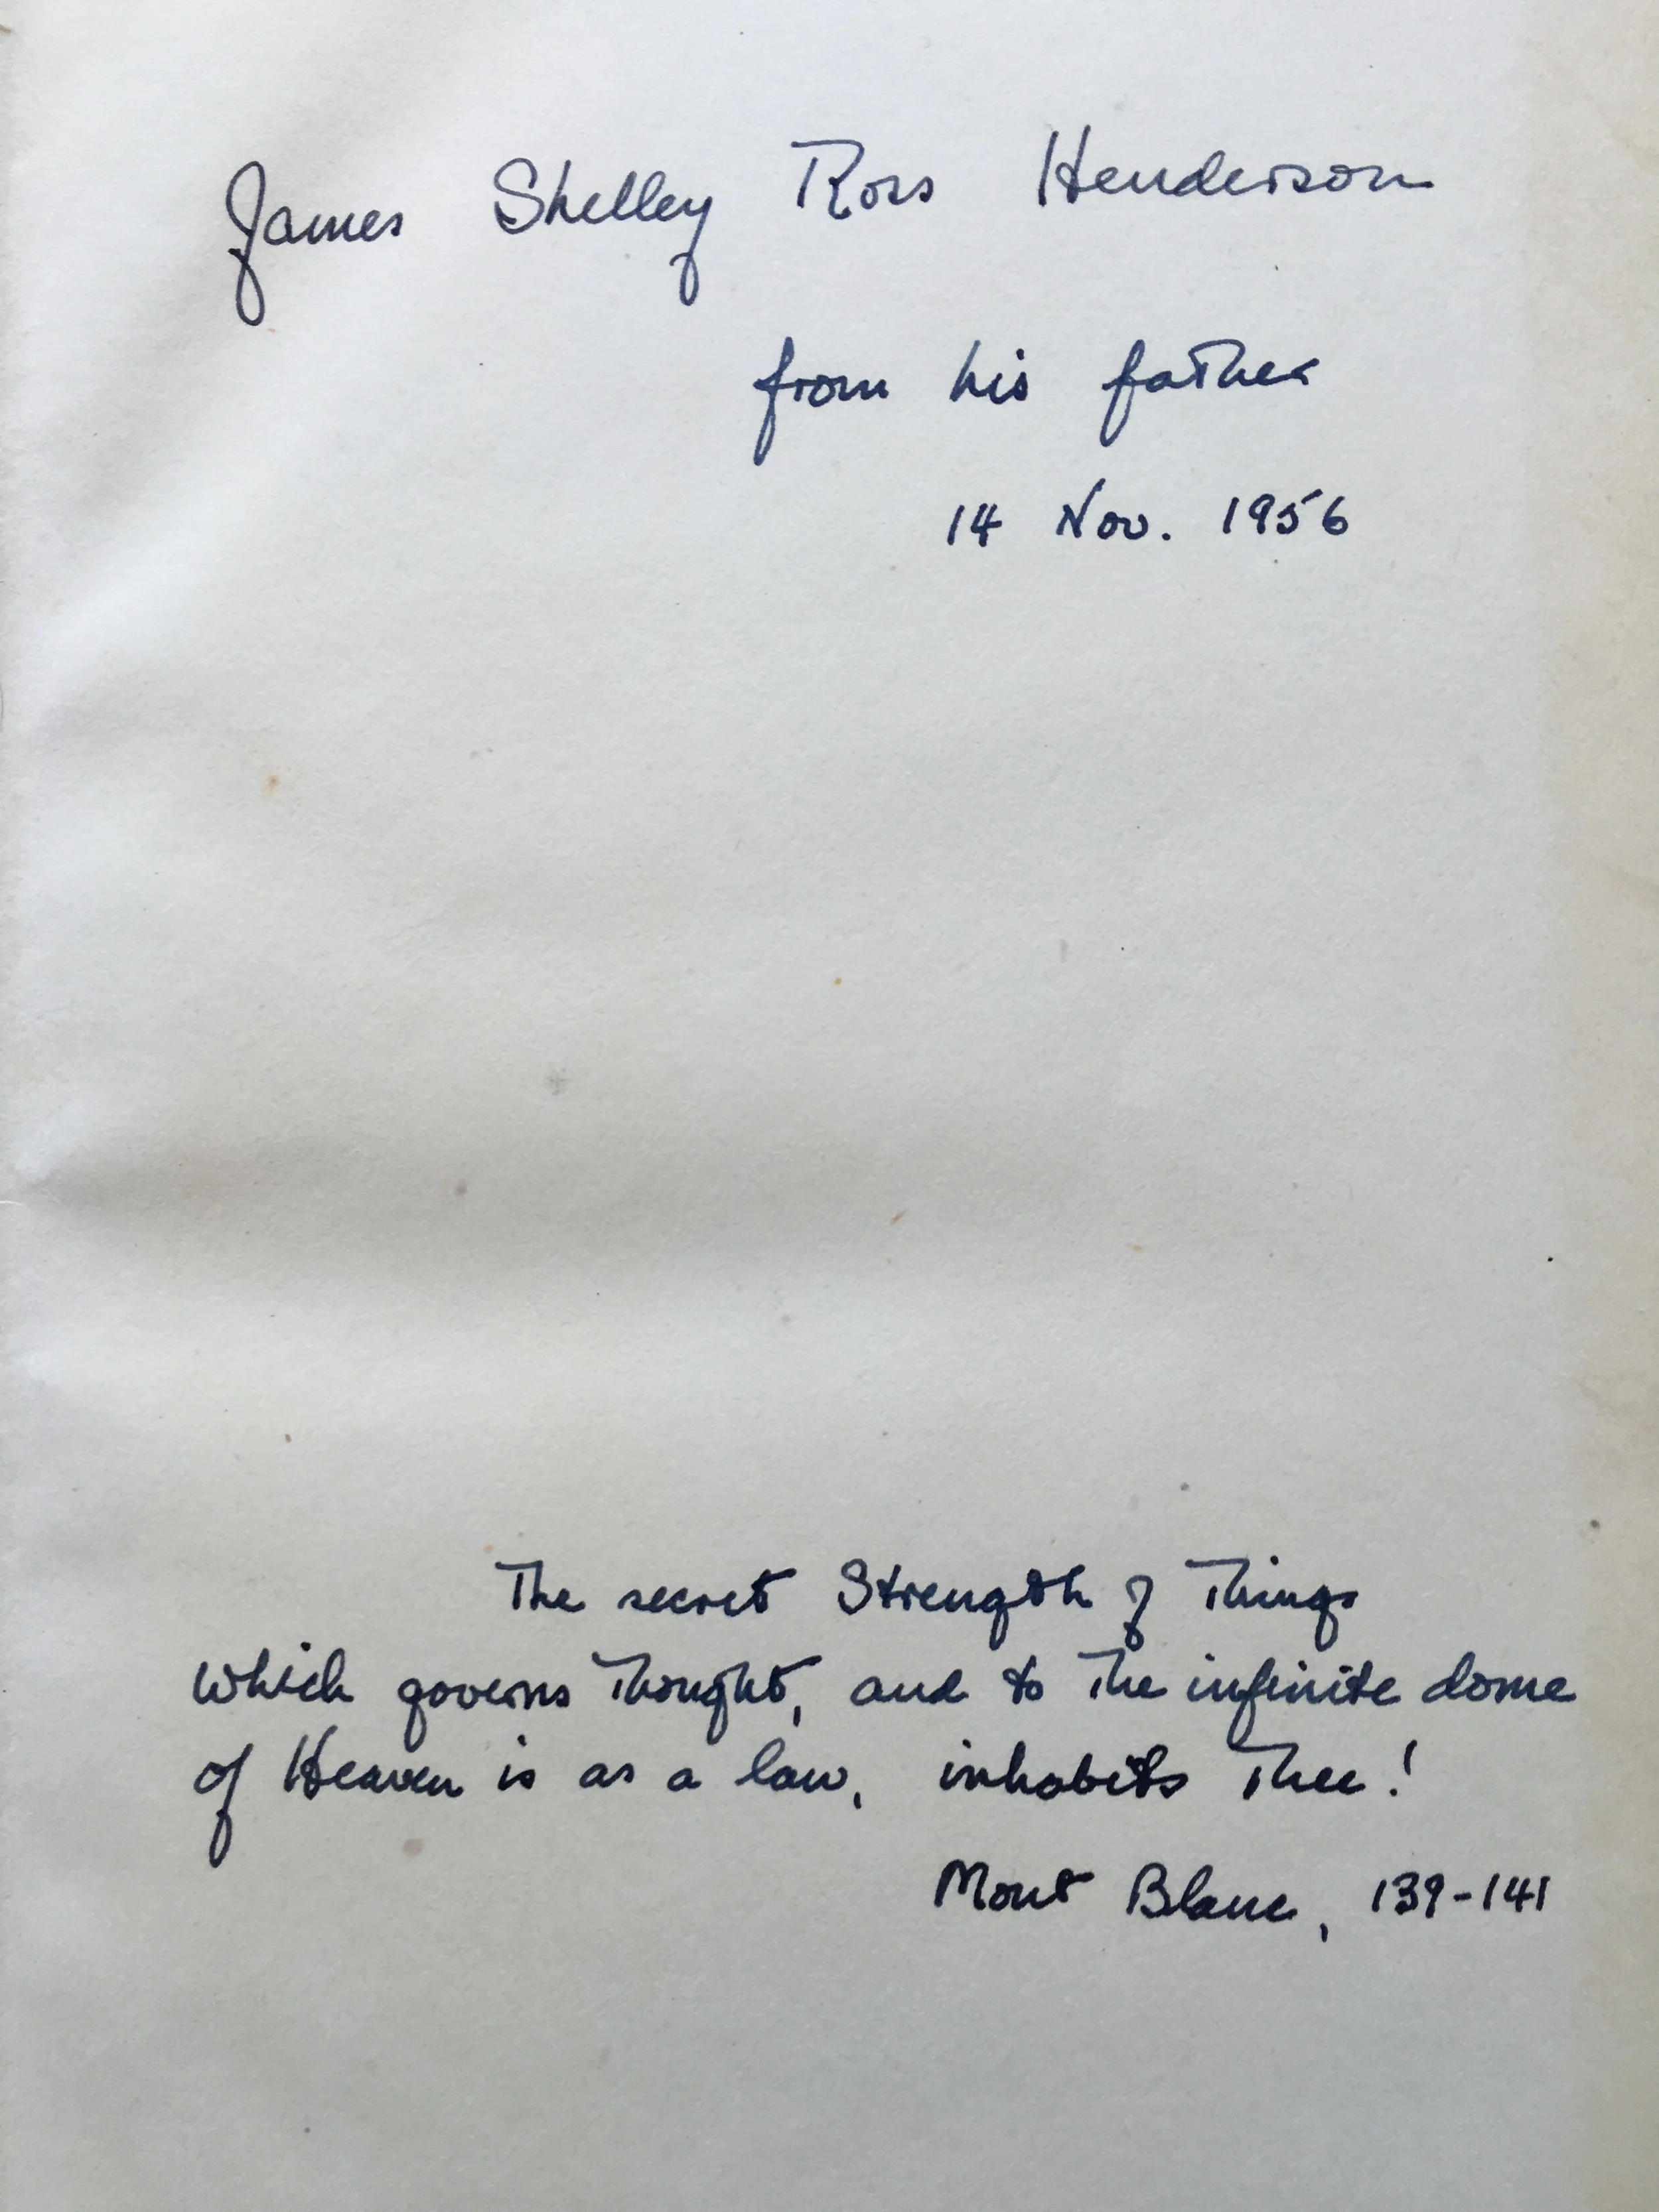 James Shelley Ross Henderson
from his father
14 Nov. 1956
The secret Strength of Things
Which governs Thought, and to the infinite dome
of Heaven is as a law, inhabits Thee!
Mont Blanc, 139-141